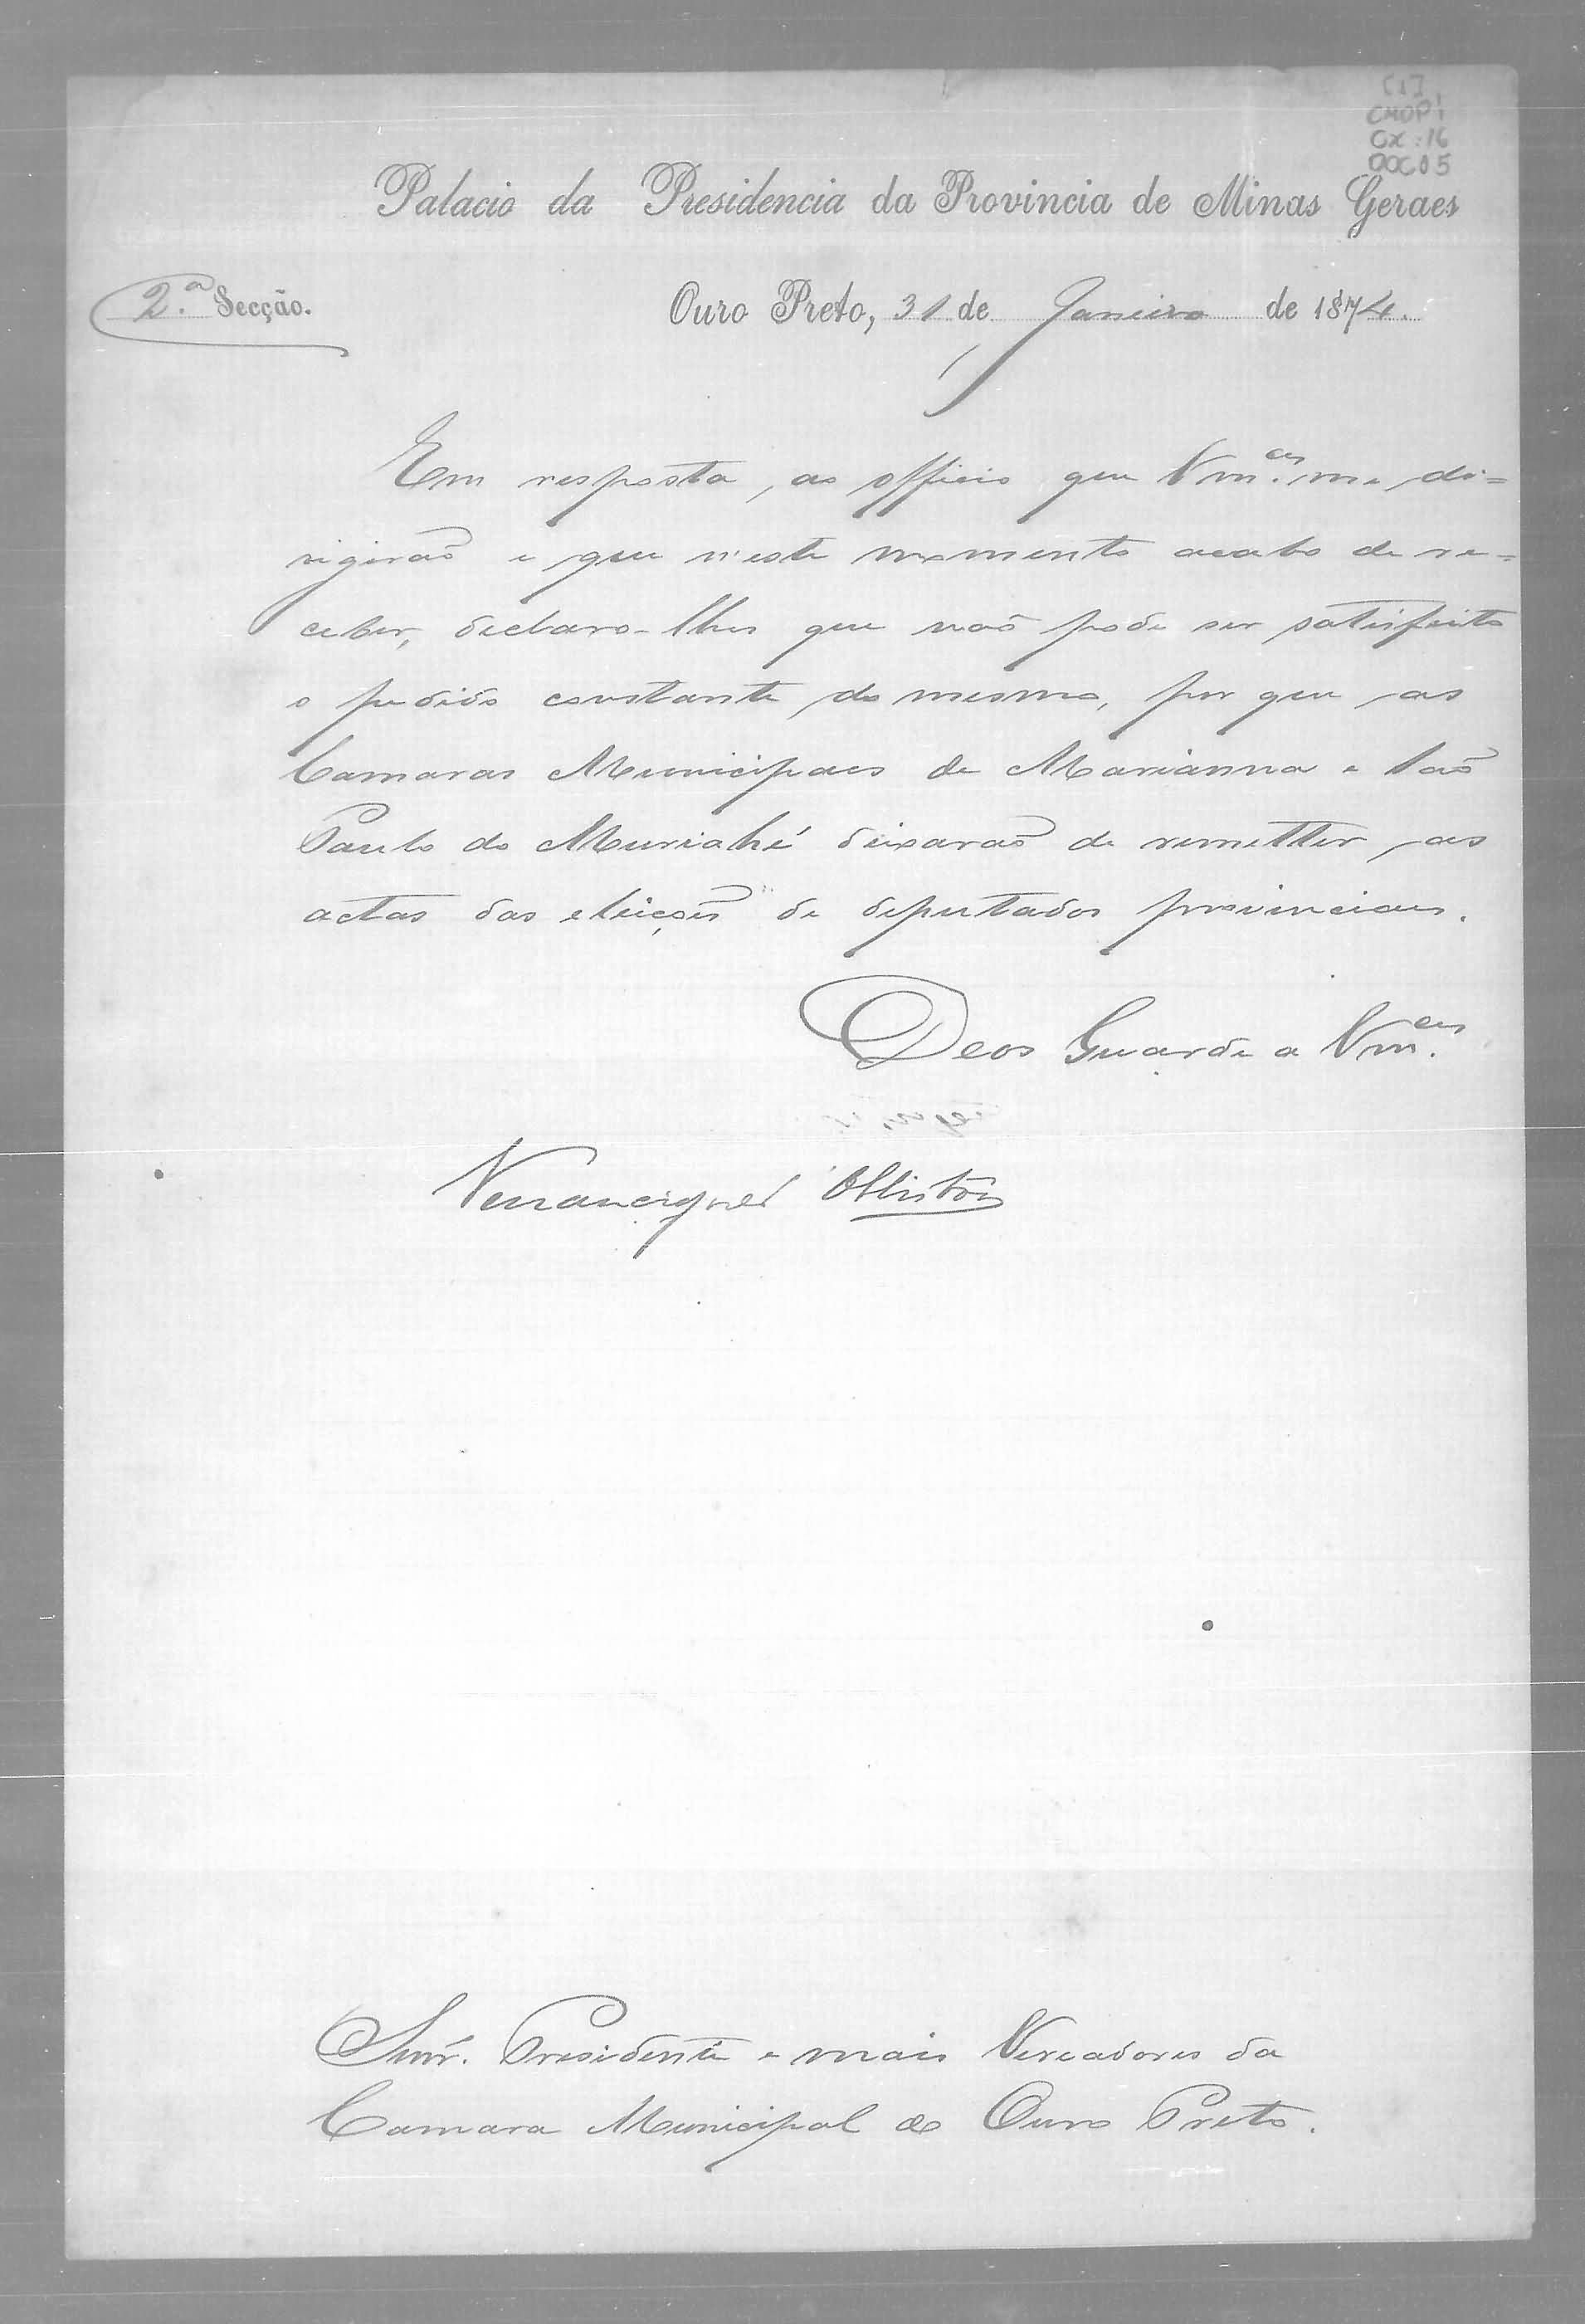 [1]
CMOP!
CX:16
DOC05
Palacio da Presidencia da Provincia de Minas Geraes
2.ª Secção.
Ouro Preto, 31 de Janeiro de 1874.
Em resposta, ao officio que Vm.ces me di=
rigirão e que n'este momento acabo de re=
ceber, declaro-lhes que não pode ser satisfeito
o pedido constante do mesmo, por que as
Camaras Municipaes de Marianna e São
Paulo do Muriahé deixarão de remetter as
actas das eleições de deputados provinciaes.
Deos Guarde a Vm.ces
Snr. Presidente e mais Vereadores da
Camara Municipal de Ouro Preto.